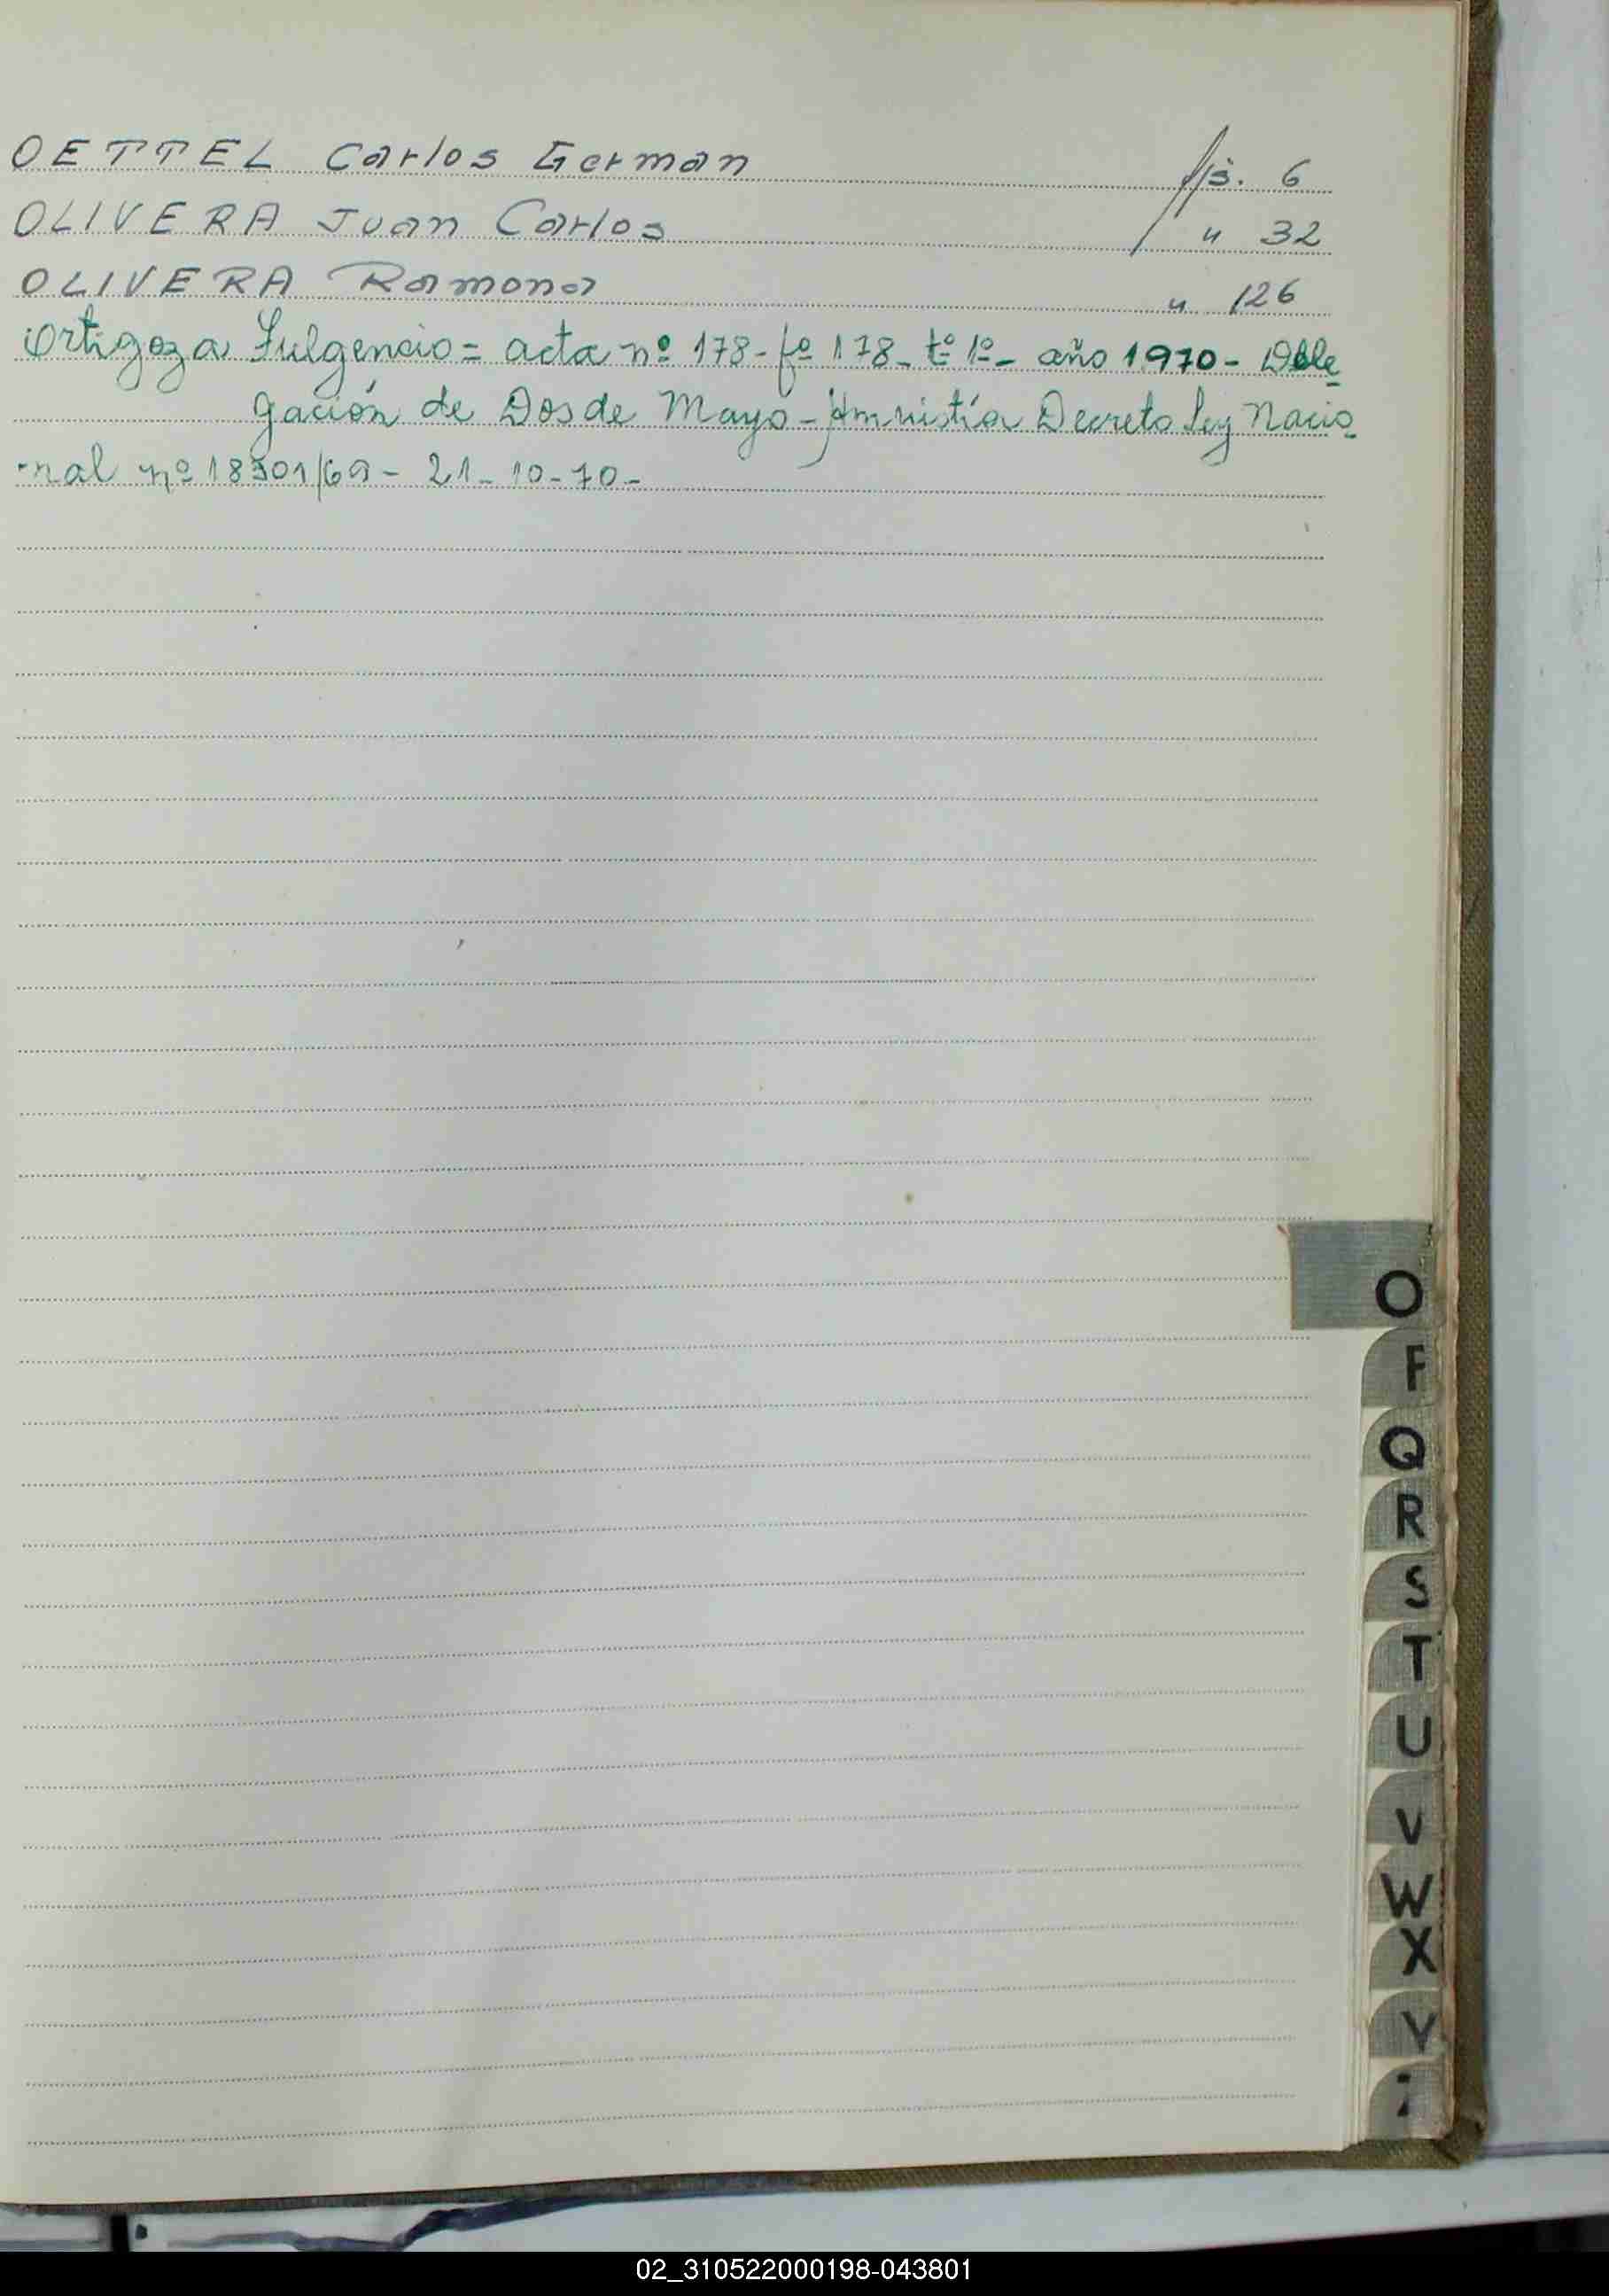 OETTEL Carlos German fjs. 6
OLIVERA Juan Carlos " 32
OLIVERA Ramona " 126
Ortigoza Fulgencio = acta nº 178 - fº 178 - tº 1º - año 1970 - Dele
gación de Dos de Mayo - Amnistía Decreto Ley Nacio
nal nº 18301/69 - 21 - 10 - 70 -
O
P
Q
R
S
T
U
V
W
X
Y
Z
02_310522000198-043801